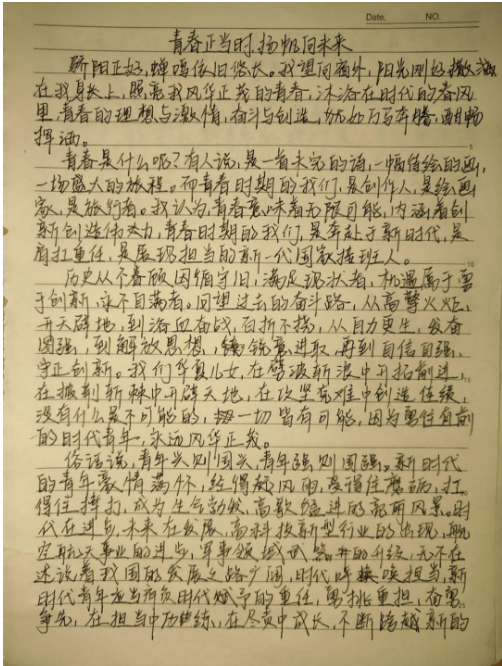 Date. NO.
青春正当时,扬帆向未来
骄阳正好,蝉鸣依旧悠长。我望向窗外,阳光刚好散落
在我身上,照亮我风华正茂的青春,沐浴在时代的春风
里,青春的理想与激情,奋斗与创造,犹如万马奔腾,酣畅
挥洒。
青春是什么呢?有人说,是一首未完的诗,一幅待绘的画,
一场盛大的旅程。而青春时期的我们,是创作人,是绘画
家,是旅行者。我认为,青春意味着无限可能,内涵着创
新创造伟大力,青春时期的我们,是奔赴于新时代,是
肩扛重任,是展现担当的新一代国家接班人。
历史从不眷顾因循守旧,满足现状者,机遇属于勇
于创新,永不自满者。回望过去的奋斗路,从高擎火炬,
开天辟地,到浴血奋战,百折不挠,从自力更生,发奋
图强,到解放思想,锐意进取,再到自信自强,
守正创新。我们华夏儿女,在劈波斩浪中开拓前进,
在披荆斩棘中开辟天地,在攻坚克难中创造佳绩,
没有什么是不可能的,一切皆有可能,因为勇往直前
的时代青年,永远风华正茂。
俗话说,青年兴则国兴,青年强则国强。新时代
的青年豪情满怀,经得起风雨,受得住磨砺,扛
得住摔打,成为生气勃发,高歌猛进的亮丽风景。时
代在进步,未来在发展,高科技新型行业的出现,航
空航天事业的进步,军事领域武器的升级,无不在
述说着我国的发展之路广阔,时代呼唤担当,新
时代青年应当肩负时代赋予的重任,勇挑重担,奋勇
争先,在担当中历练,在尽责中成长,不断跨越新的